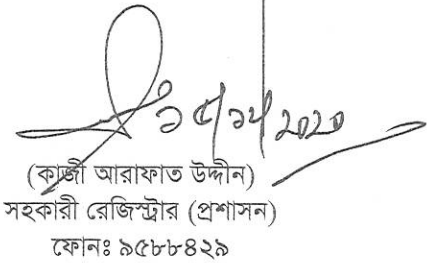 ১৫/১২/২০২০
(কাজী আরাফাত উদ্দীন)
সহকারী রেজিস্ট্রার (প্রশাসন)
ফোনঃ ৯৫৮৮৪২৯